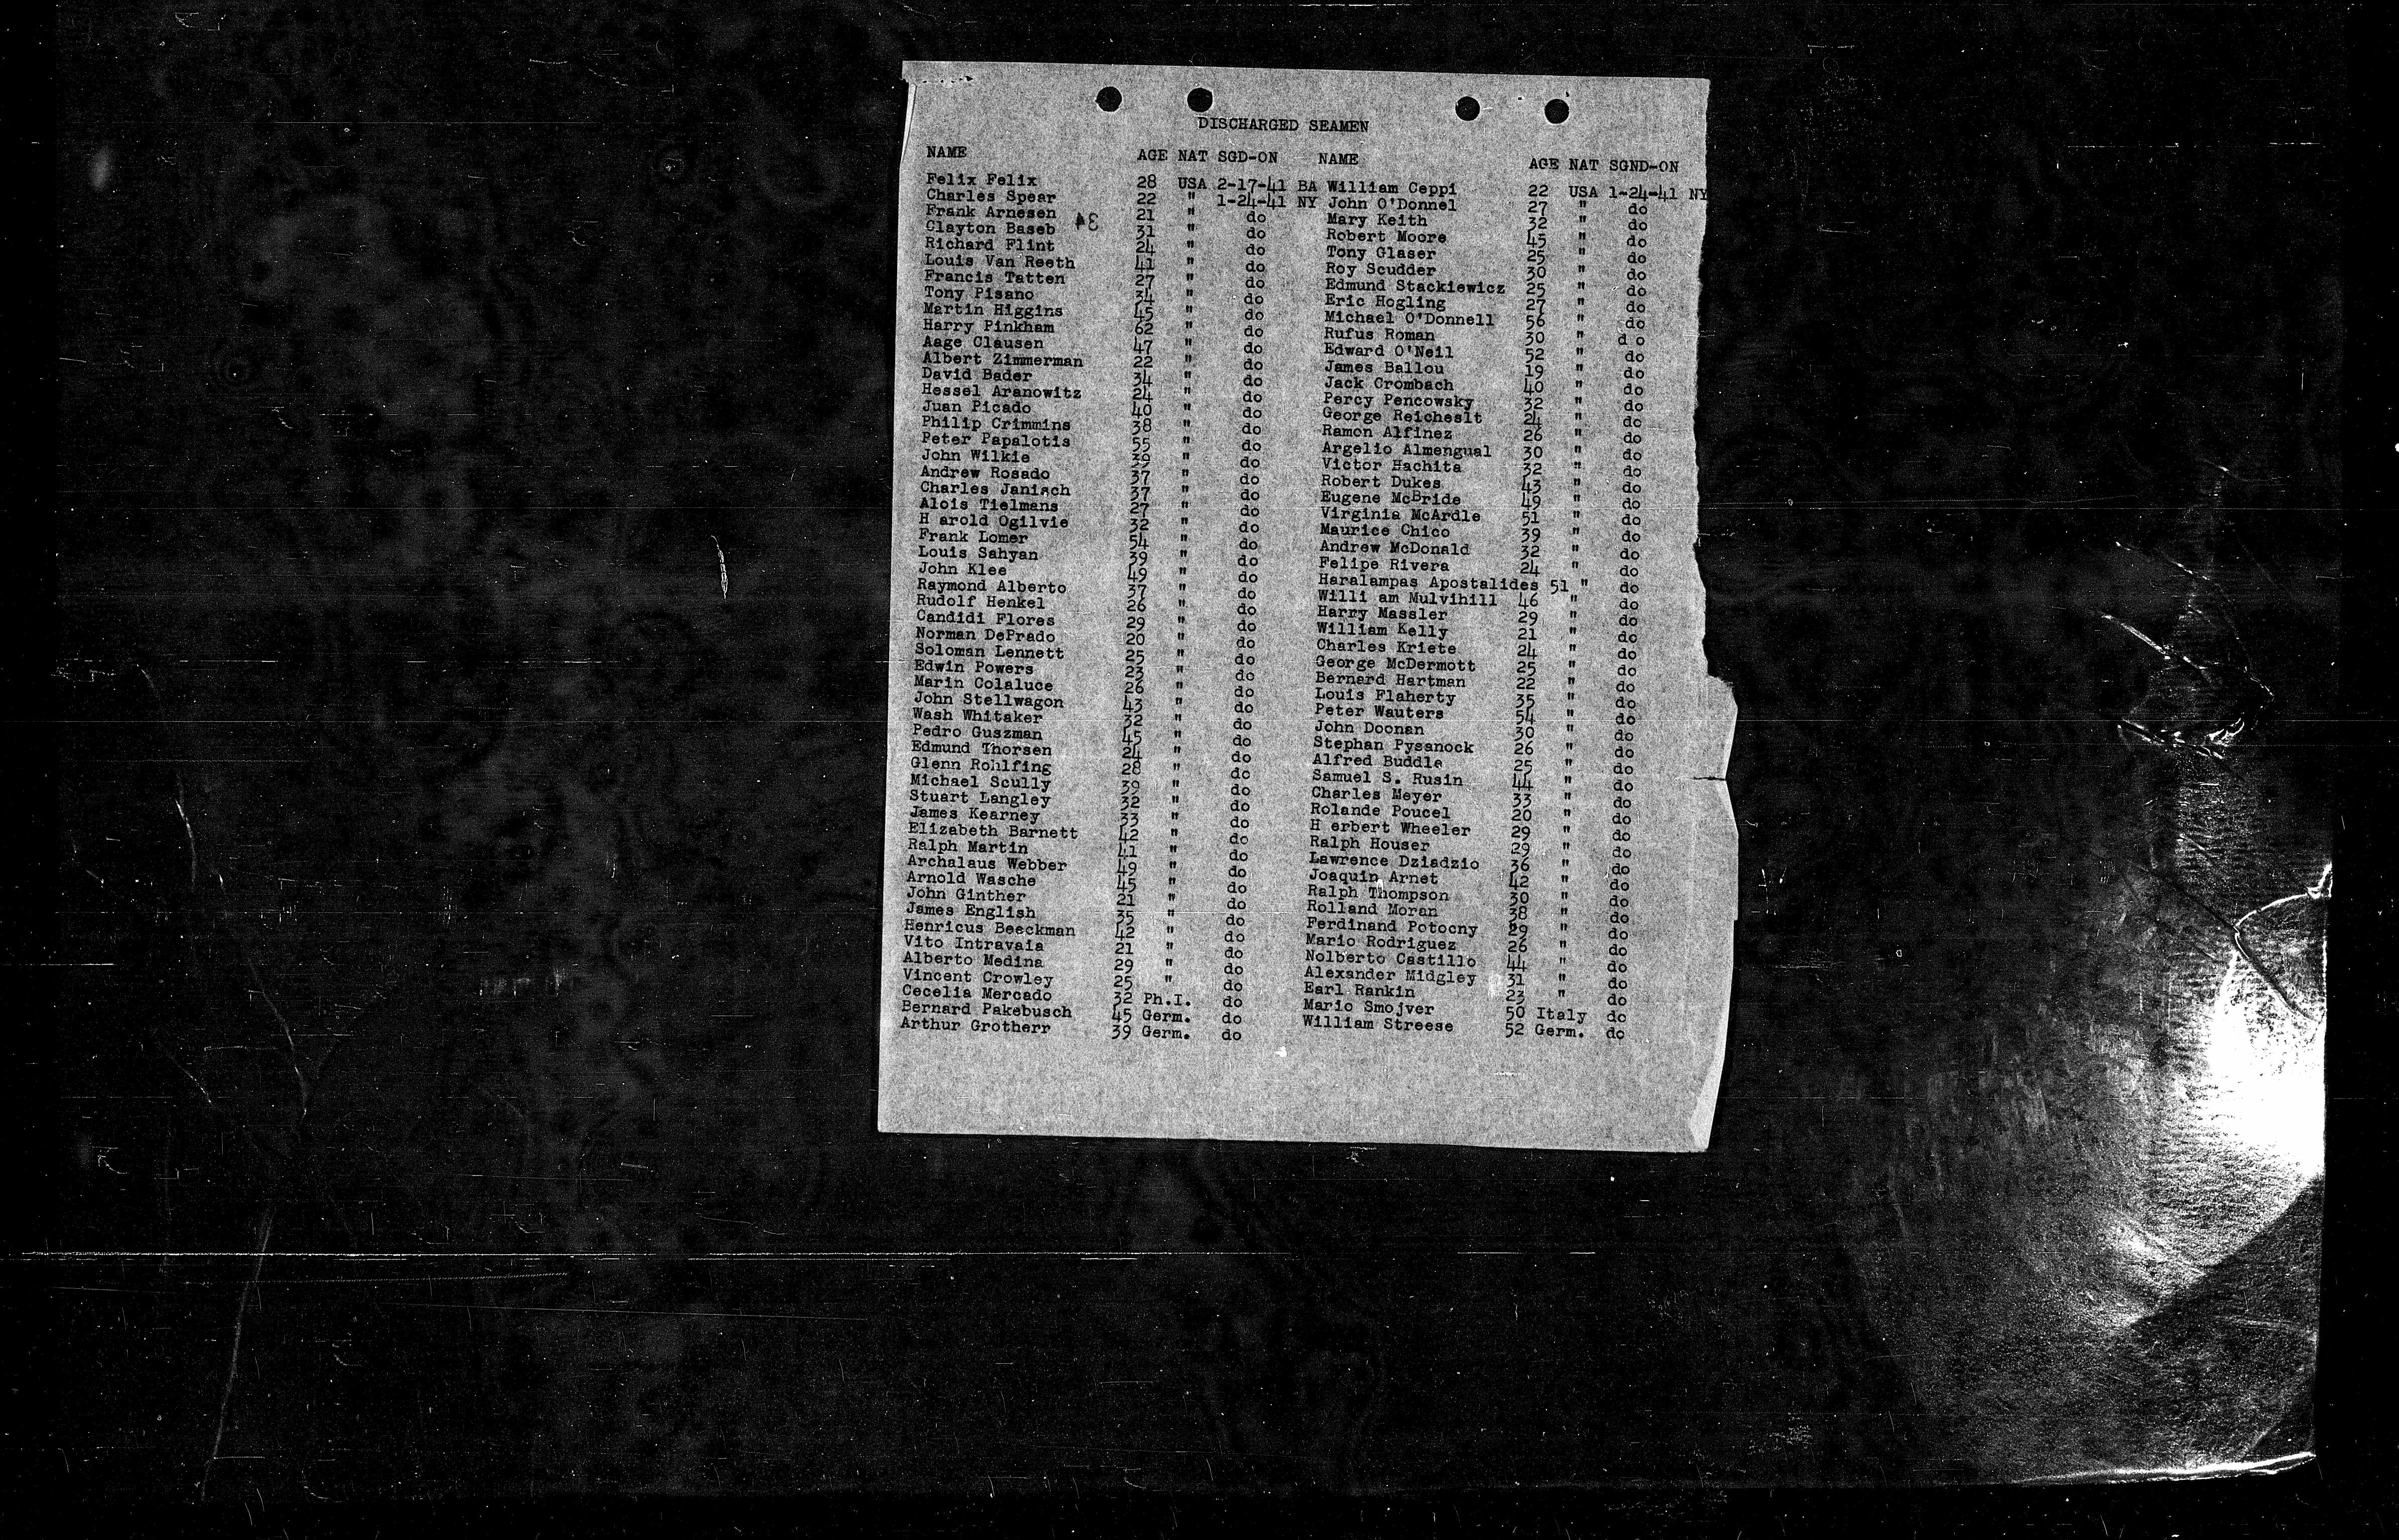 DISCHARGED SEAMEN
NAME AGE NAT SGD-ON NAME AGE NAT SGND-ON
Felix Felix 28 USA 2-17-41 BA William Ceppi 22 USA 1-24-41 NY
Charles Spear 22 " 1-24-41 NY John O'Donnel 27 " do
Frank Arnesen 21 " do Mary Keith 32 " do
Clayton Baseb 31 " do Robert Moore 45 " do
Richard Flint 24 " do Tony Glaser 25 " do
Louis Van Reeth 41 " do Roy Scudder 30 " do
Francis Tatten 27 " do Edmund Stackiewicz 25 " do
Tony Pisano 34 " do Eric Hogling 27 " do
Martin Higgins 45 " do Michael O'Donnell 56 " do
Harry Pinkham 62 " do Rufus Roman 30 " d o
Aage Clausen 47 " do Edward O'Neil 52 " do
Albert Zimmerman 22 " do James Ballou 19 " do
David Bader 34 " do Jack Crombach 40 " do
Hessel Aranowitz 24 " do Percy Pencowsky 32 " do
Juan Picado 40 " do George Reicheslt 24 " do
Philip Crimmins 38 " do Ramon Alfinez 26 " do
Peter Papalotis 55 " do Argelio Almengual 30 " do
John Wilkie 39 " do Victor Hachita 32 " do
Andrew Rosado 37 " do Robert Dukes 43 " do
Charles Janisch 37 " do Eugene McBride 49 " do
Alois Tielmans 27 " do Virginia McArdle 51 " do
H arold Ogilvie 32 " do Maurice Chico 39 " do
Frank Lomer 54 " do Andrew McDonald 32 " do
Louis Sahyan 39 " do Felipe Rivera 24 " do
John Klee 49 " do Haralampas Apostalides 51 " do
Raymond Alberto 37 " do Willi am Mulvihill 46 " do
Rudolf Henkel 26 " do Harry Massler 29 " do
Candidi Flores 29 " do William Kelly 21 " do
Norman DePrado 20 " do Charles Kriete 24 " do
Soloman Lennett 25 " do George McDermott 25 " do
Edwin Powers 23 " do Bernard Hartman 22 " do
Marin Colaluce 26 " do Louis Flaherty 35 " do
John Stellwagon 43 " do Peter Wauters 54 " do
Wash Whitaker 32 " do John Doonan 30 " do
Pedro Guszman 45 " do Stephan Pysanock 26 " do
Edmund Thorsen 24 " do Alfred Buddle 25 " do
Glenn Rohlfing 28 " do Samuel S. Rusin 44 " do
Michael Scully 39 " do Charles Meyer 33 " do
Stuart Langley 32 " do Rolande Poucel 20 " do
James Kearney 33 " do H erbert Wheeler 29 " do
Elizabeth Barnett 42 " do Ralph Houser 29 " do
Ralph Martin 41 " do Lawrence Dziadzio 36 " do
Archalaus Webber 49 " do Joaquin Arnet 42 " do
Arnold Wasche 45 " do Ralph Thompson 30 " do
John Ginther 21 " do Rolland Moran 38 " do
James English 35 " do Ferdinand Potocny 29 " do
Henricus Beeckman 42 " do Mario Rodriguez 26 " do
Vito Intravaia 21 " do Nolberto Castillo 44 " do
Alberto Medina 29 " do Alexander Midgley 31 " do
Vincent Crowley 25 " do Earl Rankin 23 " do
Cecelia Mercado 32 Ph.I. do Mario Smojver 50 Italy do
Bernard Pakebusch 45 Germ. do William Streese 52 Germ. do
Arthur Grotherr 39 Germ. do